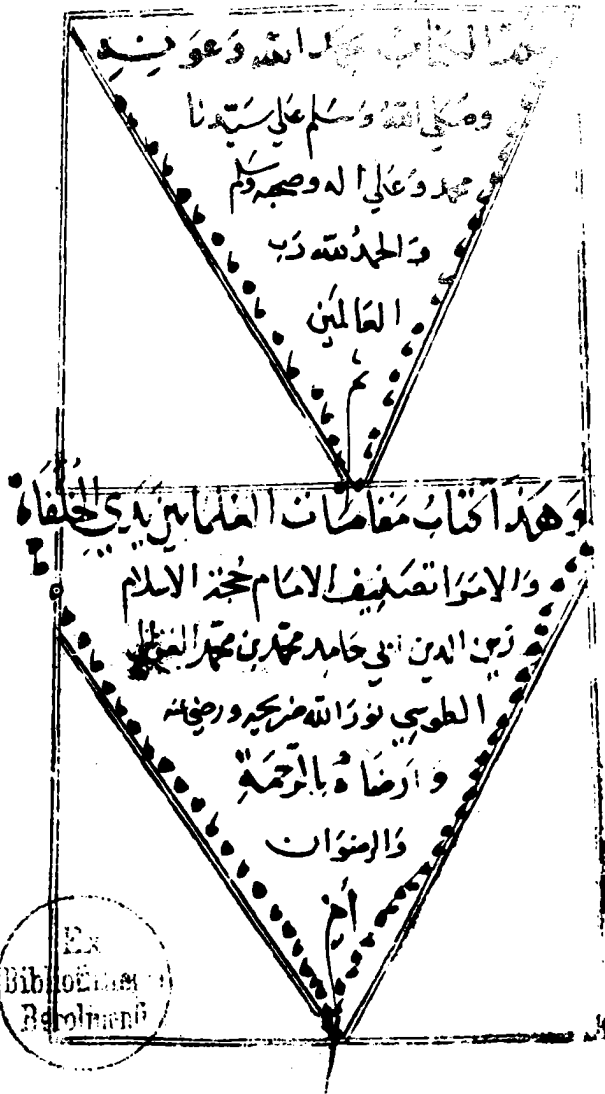 الكتاب بحمد الله وعونه
وصلي الله وسلم علي سيدنا
محمد وعلي اله وصحبه وسلم
والحمد لله رب
العالمين
تم
وهذا كتاب مقامات العلما بين يدي الخلفاء
والامرا تصنيف الامام حجة الاسلام
زين الدين ابي حامد محمد بن محمد الغزالي
الطوسي نور الله ضريحه ورضي عنه
وارضاه بالرحمة
والرضوان
امين
Ex
Biblioth
Berolinenfi